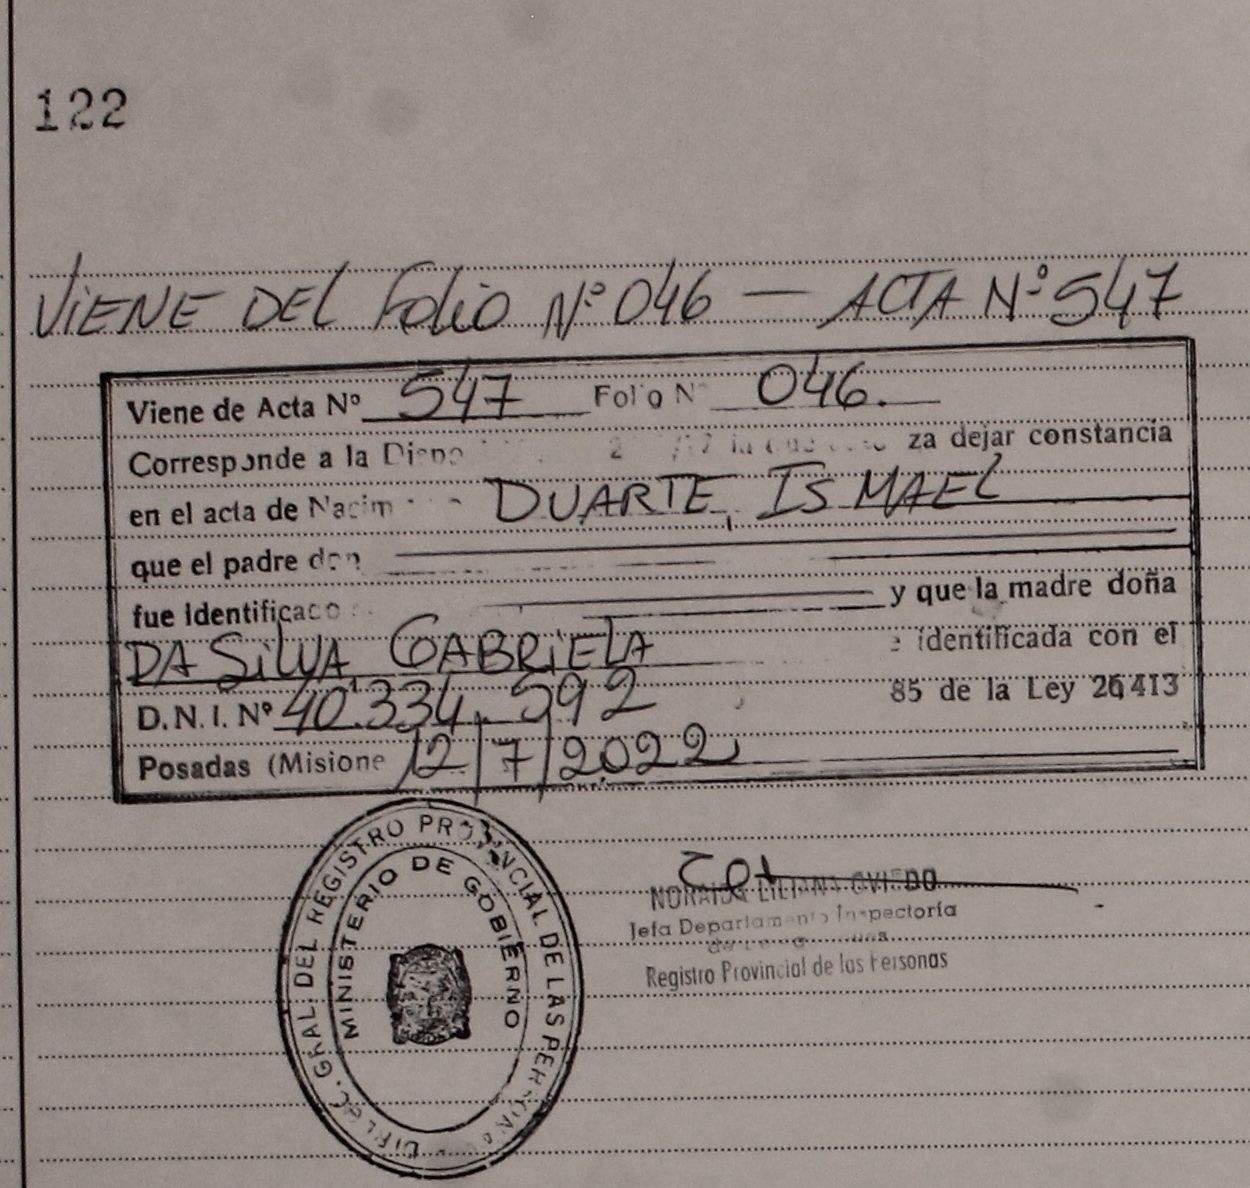 122
VIENE DEL Folio Nº 046 — ACTA Nº 547
Viene de Acta Nº 547 Folio Nº 046.
Corresponde a la za dejar constancia
en el acta de DUARTE, ISMAEL
que el padre don
fue identificado y que la madre doña
DA SILVA, GABRIELA identificada con el
D.N.I. Nº 40.334.592 85 de la Ley 26413
Posadas (Misione 12/7/2022
GRAL. DEL REGISTRO PROVINCIAL DE LAS PERSONAS
MINISTERIO DE GOBIERNO
OVIEDO
Jefa Departamento Inspectoría
Registro Provincial de las Personas